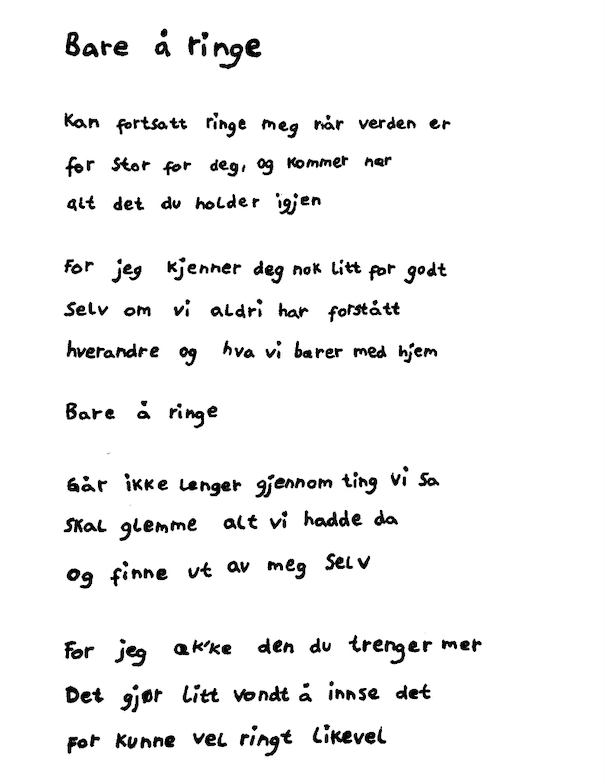 Bare å ringe
Kan fortsatt ringe meg når verden er
for stor for deg, og kommer nær
alt det du holder igjen
For jeg kjenner deg nok litt for godt
Selv om vi aldri har forstått
hverandre og hva vi bærer med hjem
Bare å ringe
Går ikke lenger gjennom ting vi sa
Skal glemme alt vi hadde da
Og finne ut av meg selv
For jeg æk'ke den du trenger mer
Det gjør litt vondt å innse det
For kunne vel ringt likevel